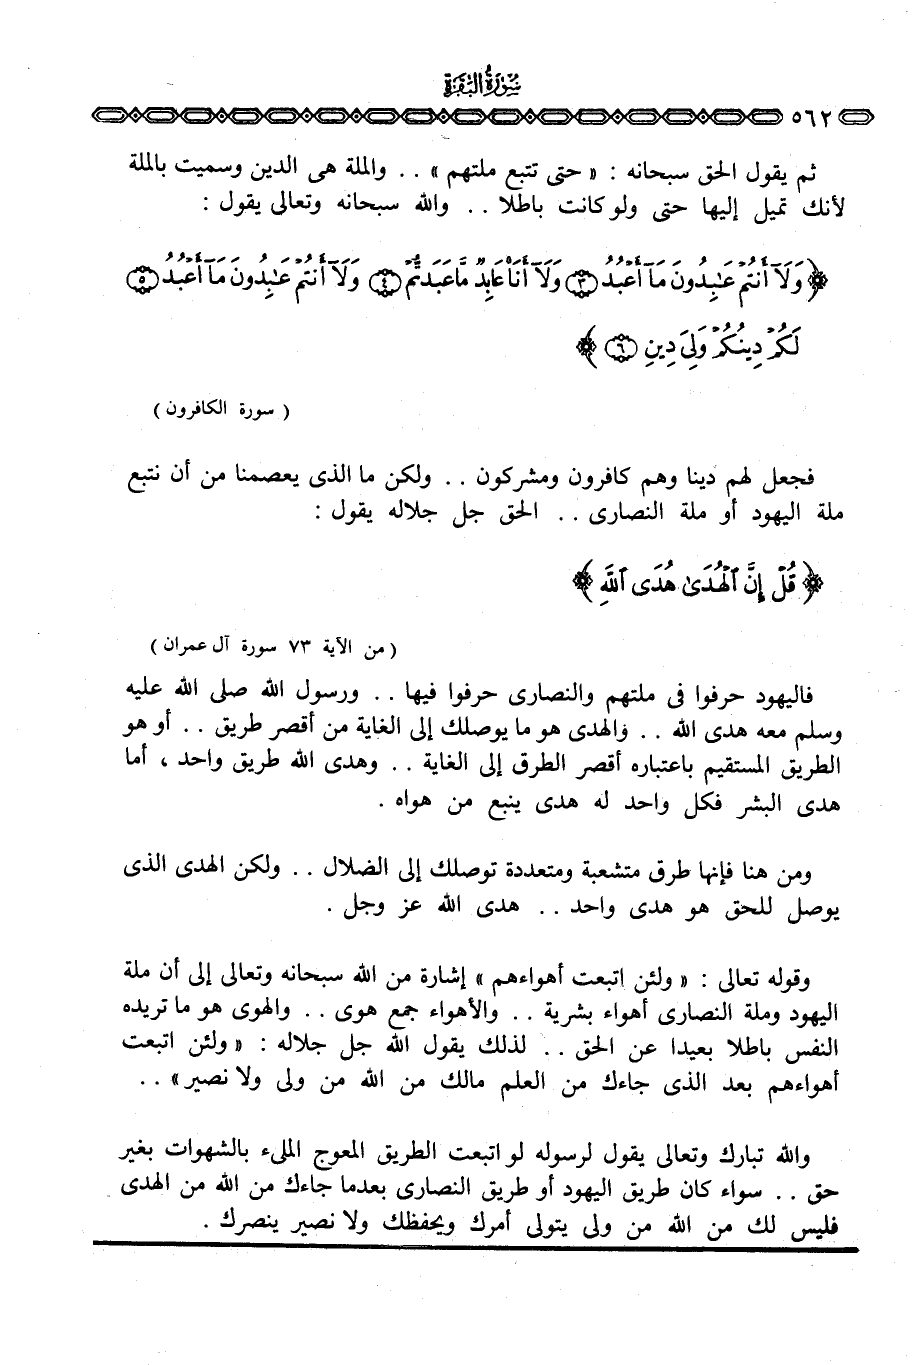 سُورَةُ البَقَرَة
٥٦٢
ثم يقول الحق سبحانه : « حتى تتبع ملتهم » . . والملة هى الدين وسميت بالملة
لأنك تميل إليها حتى ولو كانت باطلا . . والله سبحانه وتعالى يقول :
﴿ وَلَآ أَنتُمْ عَٰبِدُونَ مَآ أَعْبُدُ ٣ وَلَآ أَنَا۠ عَابِدٌ مَّا عَبَدتُّمْ ٤ وَلَآ أَنتُمْ عَٰبِدُونَ مَآ أَعْبُدُ ٥
لَكُمْ دِينُكُمْ وَلِىَ دِينِ ٦ ﴾
( سورة الكافرون )
فجعل لهم دينا وهم كافرون ومشركون . . ولكن ما الذى يعصمنا من أن نتبع
ملة اليهود أو ملة النصارى . . الحق جل جلاله يقول :
﴿ قُلْ إِنَّ ٱلْهُدَىٰ هُدَى ٱللَّهِ ﴾
( من الآية ٧٣ سورة آل عمران )
فاليهود حرفوا فى ملتهم والنصارى حرفوا فيها . . ورسول الله صلى الله عليه
وسلم معه هدى الله . . والهدى هو ما يوصلك إلى الغاية من أقصر طريق . . أو هو
الطريق المستقيم باعتباره أقصر الطرق إلى الغاية . . وهدى الله طريق واحد ، أما
هدى البشر فكل واحد له هدى ينبع من هواه .
ومن هنا فإنها طرق متشعبة ومتعددة توصلك إلى الضلال . . ولكن الهدى الذى
يوصل للحق هو هدى واحد . . هدى الله عز وجل .
وقوله تعالى : « ولئن اتبعت أهواءهم » إشارة من الله سبحانه وتعالى إلى أن ملة
اليهود وملة النصارى أهواء بشرية . . والأهواء جمع هوى . . والهوى هو ما تريده
النفس باطلا بعيدا عن الحق . . لذلك يقول الله جل جلاله : « ولئن اتبعت
أهواءهم بعد الذى جاءك من العلم مالك من الله من ولى ولا نصير » . .
والله تبارك وتعالى يقول لرسوله لو اتبعت الطريق المعوج الملىء بالشهوات بغير
حق . . سواء كان طريق اليهود أو طريق النصارى بعدما جاءك من الله من الهدى
فليس لك من الله من ولى يتولى أمرك ويحفظك ولا نصير ينصرك .